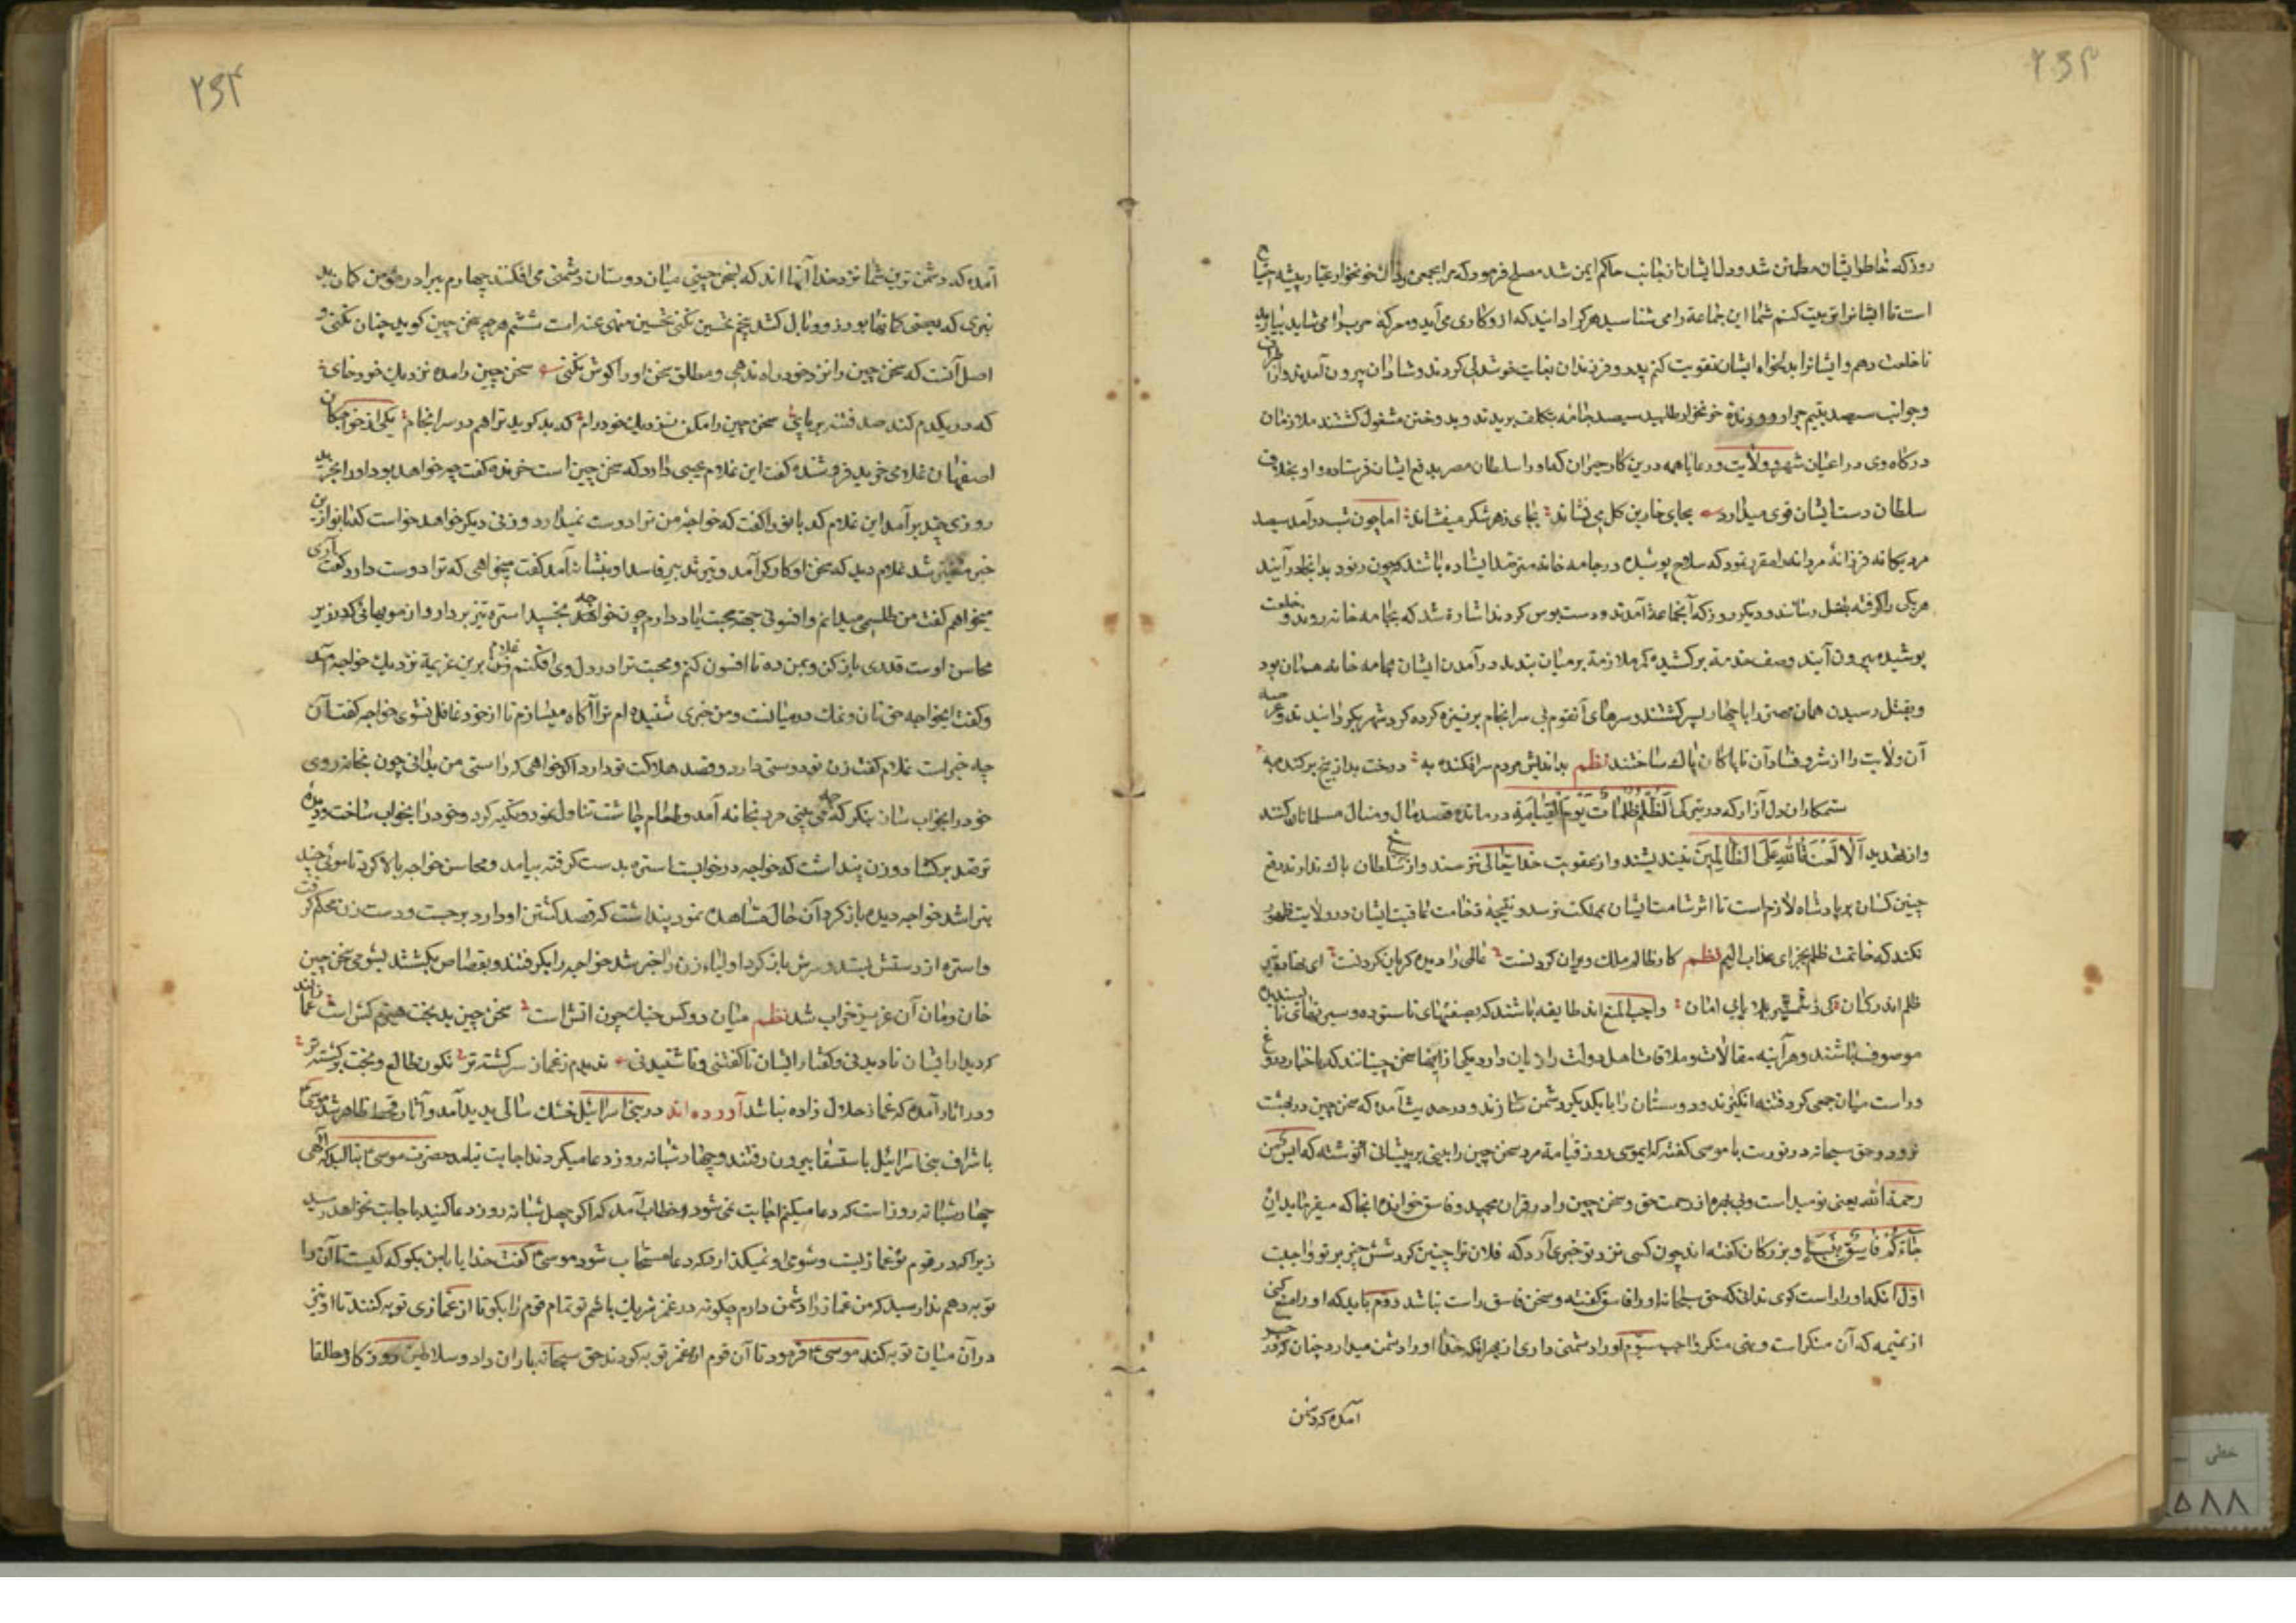 ۲۶۳
روز که خاطر ایشان مطمئن شد و دل ایشان از جانب حاکم ایمن شد مصلح فرمود که مرا جمعی خونخوار عیار پیشه احتیاج
است تا ایشانرا تربیت کنم شما این جماعة را می شناسید هر کرا دانید که ازو کاری می آید و معرکه حربرا می شاید بیارید
تا خلعت دهم و ایشانرا بدلخواه ایشان تقویت کنم پدر و فرزندان بغایت خوشدلی کردند و شادان بیرون آمدند و از اطراف
و جوانب سیصد یتیم خونخوار طلبید سیصد جامه بتکلف بریدند و بدوختن مشغول گشتند ملازمان
درگاه وی در اعیان شهر و ولایت و رعایا همه درین کار حیران که او را سلطان مصر بدفع ایشان فرستاده و او بخلاف
سلطان دست ایشان قوی میدارد بجای خار بن گل می نشاند بجای زهر شکر میفشاند اما چون شب درآمد سیصد
مرد یکانه فرزانهٔ مردانه را مقرر نمود که سلاح پوشیده در جامه خانه مترصد ایستاده باشند که چون رنود بدانجا درآیند
هر یکی را گرفته بقتل رسانند و دیگر روز که آنجماعة آمدند و دست بوس کردند اشارة شد که بجامه خانه روند و خلعت
پوشیده بیرون آیند و صف خدمة برکشیده کمر ملازمة بر میان بندند درآمدن ایشان بجامه خانه همان بود
و بقتل رسیدن همان مهتر را با چهار پسر کشتند و سرهای آنقوم بی سرانجام بر نیزه کرده گرد شهر بگردانیدند و عرصه
آن ولایت را از شر و فساد آن ناپاکان پاک ساختند نظم بداندیش مردم سرافکنده به درخت بد از بیخ برکنده به
ستمکاران دل آزار که در تیرگی الظلم ظلمات یوم القیامة درمانده قصد مال و منال مسلمانان کنند
و از تهدید الا لعنة الله علی الظالمین نیندیشند و از عقوبت خدایتعالی نترسند و از سلطان باک ندارند دفع
چنین کسان بر پادشاه لازم است تا اثر شامت ایشان بمملکت نرسد و نتیجهٔ وخامت عاقبت ایشان در ولایت ظهور
نکند که خاتمت ظلم بجزای عذاب الیم نظم کار ظالم ملک ویران کردنست عالمی را دیده گریان کردنست
موصوف باشند و هر آینه مقالات و ملاقات اهل دولت را زیان دارد یکی از اینها سخن چینانند که باخبار دروغ
و راست میان جمعی گرد فتنه انگیزند و دوستان را با یکدیگر دشمن سازند و در حدیث آمده که سخن چین در بهشت
نرود و حق سبحانه در توریت با موسی گفته که ایموسی روز قیامة مرد سخن چین را بینی بر پیشانی او نوشته که ایس من
رحمة الله یعنی نومید است و بی بهره از رحمت حق و سخن چین را در قرآن مجید فاسق خوانده انجا که میفرماید ان
جاءکم فاسق بنبا و بزرگان گفته اند چون کسی نزد تو خبری آرد که فلان ترا چنین گفت شش چیز بر تو واجبست
اول انکه او را راست گوی ندانی که حق سبحانه او را فاسق گفته و سخن فاسق راست نباشد دوم باید که او را منع کنی
از نمیمه که آن منکر است و نهی منکر واجب سیوم او را دشمن داری از بهر انکه خدا او را دشمن میدارد چنان که در خبر
آمده که دشمن
۲۶۴
آمده که دشمن ترین شما نزد خدا آنها اند که بسخن چینی میان دوستان دشمنی می افکنند چهارم ببرادر مؤمن گمان بد
نبری که بعضی گمانها بوزر و وبال کشد پنجم تجسس نکنی تجسس منهی عنه است ششم هر چه سخن چین گوید چنان نکنی و
اصل آنست که سخن چین را نزد خود راه ندهی و مطلق سخن او را گوش نکنی سخن چین را مده نزدیک خود جای
که در یکدم کند صد فتنه بر پای سخن چین را مکن نزدیک خود رام که بد گوید ترا هم در سرانجام یکی از خواجگان
اصفهان غلامی خرید فروشنده گفت این غلام عیبی دارد که سخن چین است خرنده گفت چه خواهد بود او را بخرید
روزی چند برآمد این غلام کدبانو را گفت که خواجهٔ من ترا دوست نمیدارد و زنی دیگر خواهد خواست کدبانو ازین
خبر متغیر شد غلام دید که سخن او کارگر آمد و تیر تدبیر فاسد او بنشانه آمد گفت میخواهی که ترا دوست دارد گفت آری
میخواهم گفت من طلسمی میدانم و افسونی جهة محبت یاد دارم چون خواجه بخسپد استرهٔ تیز بردار و از مویهائی که در زیر
محاسن اوست قدری باز کن و بمن ده تا افسون کنم و محبت ترا در دل وی افکنم زن برین عزیمة غلام نزدیک خواجه آمد
و گفت ایخواجه حق نان و نمک در میانست و من خبری شنیده ام ترا آگاه میسازم تا از خود غافل نشوی خواجه گفت آن
چه خبر است غلام گفت زن تو دوستی دارد و قصد هلاکت تو دارد اگر خواهی که راستی من بدانی چون بخانه روی
خود را بخواب ساز بنگر که چه می بینی مرد بخانه آمد و طعام چاشت تناول نمود و تکیه کرد و خود را بخواب ساخت و دیده
ترصد برگشاد و زن پنداشت که خواجه در خوابست استره بدست گرفته بیامد و محاسن خواجه بالا کرد تا موئی چند
بتراشد خواجه دیده باز کرد آن حال مشاهده نمود پنداشت که قصد کشتن او دارد برجست و دست زن محکم گرفت
و استره از دستش بستد و سرش باز کرد اولیاء زن را خبر شد خواجه را بگرفتند و بقصاص بکشتند بشومی سخن چین
خان و مان آن عزیز خراب شد نظم میان دو کس جنگ چون آتش است سخن چین بدبخت هیزم کش است غمازند
که دیدار ایشان نادیدنی و گفتار ایشان ناگفتنی و ناشنیدنی ندیدم ز غماز سرگشته تر نگون طالع و بخت برگشته تر
و در اثار آمده که غماز حلال زاده نباشد آورده اند در بنی اسرائیل خشک سالی پدید آمد و آثار قحط ظاهر شد موسی
با اشراف بنی اسرائیل باستسقا بیرون رفتند و چهار شبانه روز دعا میکردند اجابت نیامد حضرت موسی بنالید که الهی
چهار شبانه روز است که دعا میکنم اجابت نمی شود خطاب آمد که اگر چهل شبانه روز دعا کنید باجابت نخواهد رسید
زیرا که در قوم تو غمازیست و شومی او نمیگذارد که دعا مستجاب شود موسی گفت خدایا با من بگو که کیست تا آن را
توبه دهم ندا رسید که من غماز را دشمن دارم چگونه در غمز شریک باشم تو تمام قوم را بگو تا از غمازی توبه کنند تا او نیز
در آن میان توبه کند موسی فرمود تا آن قوم از غمز توبه کردند حق سبحانه باران داد و سلاطین
خطی
۵۸۸